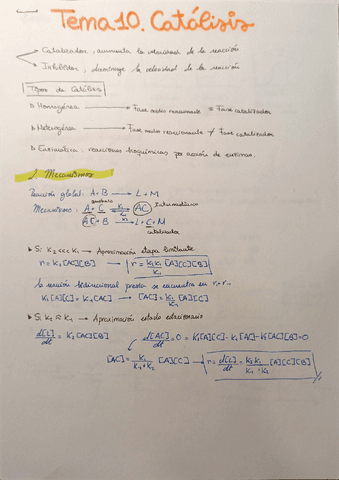 Tema 10. Catálisis
Catalizador, aumenta la velocidad de la reacción
Inhibidor, disminuye la velocidad de la reacción
Tipos de Catálisis
Homogénea → Fase medio reaccionante = Fase catalizador
Heterogénea → Fase medio reaccionante ≠ Fase catalizador
Enzimática: reacciones bioquímicas por acción de enzimas.
1. Mecanismos
Reacción global: A + B → L + M
Mecanismo: A + C ⇌ AC Intermedio
AC + B → L + C + M
catalizador
Si K₂ <<< K₋₁ → Aproximación etapa limitante
r = K₂[AC][B] → r = K₁K₂/K₋₁ [A][C][B]
la reacción bidireccional presto se encuentra en r₁ = r₋₁
K₁[A][C] = K₋₁[AC] → [AC] = K₁/K₋₁ [A][C]
Si K₂ ≈ K₋₁ → Aproximación estado estacionario
d[L]/dt = K₂[AC][B] d[AC]/dt = 0 = K₁[A][C] - K₋₁[AC] - K₂[AC][B] = 0
[AC] = K₁/K₋₁+K₂ [A][C] → r = d[L]/dt = K₁K₂/K₋₁+K₂ [A][C][B]